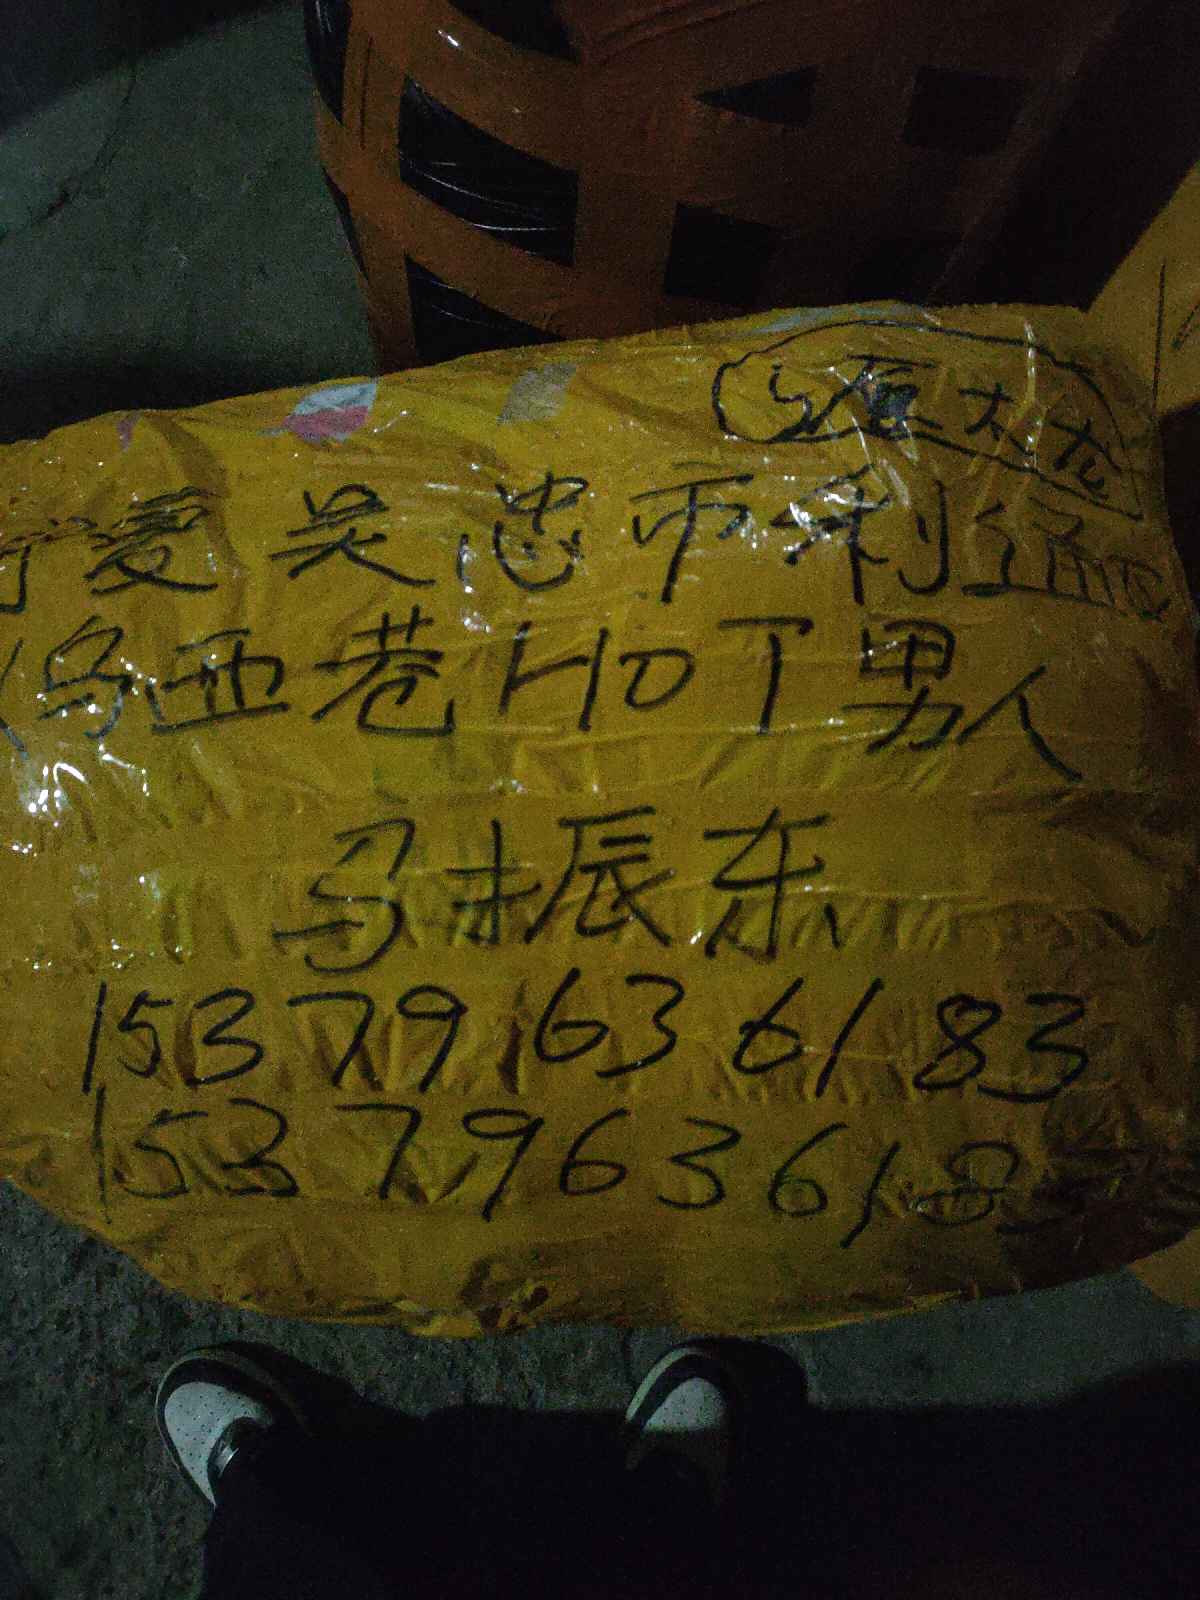 宁夏吴忠市利通区
乌西巷HOT男人
马振东
15379636183
1537963618